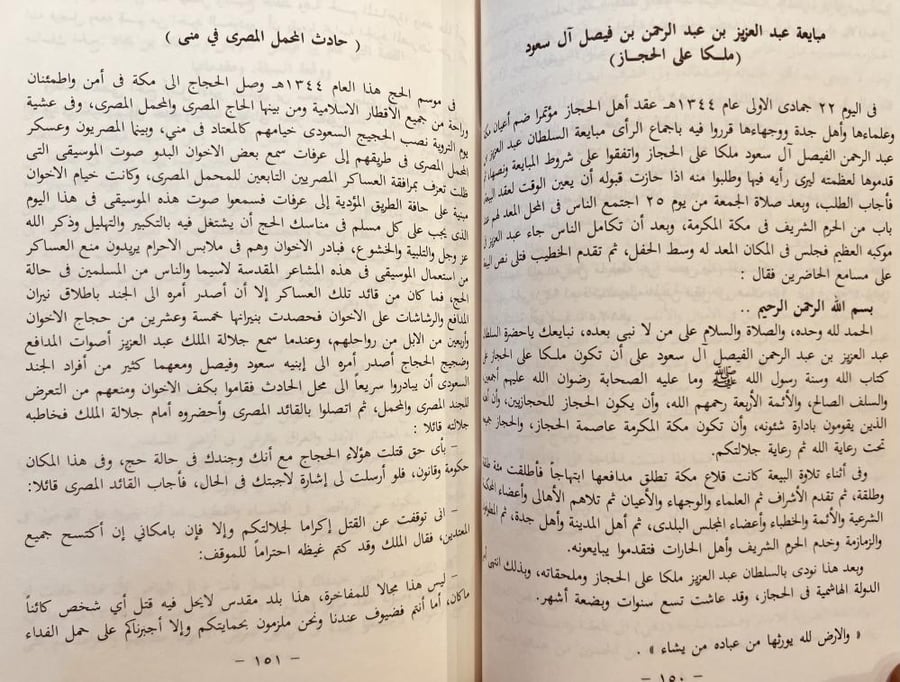 مبايعة عبد العزيز بن عبد الرحمن بن فيصل آل سعود
(ملكا على الحجاز)
فى اليوم ٢٢ جمادى الاولى عام ١٣٤٤هـ عقد أهل الحجاز مؤتمرا ضم أعيان
وعلماءها وأهل جدة ووجهاءها قرروا فيه باجماع الرأى مبايعة السلطان عبد العزيز
عبد الرحمن الفيصل آل سعود ملكا على الحجاز واتفقوا على شروط المبايعة ونصها
قدموها لعظمته ليرى رأيه فيها وطلبوا منه اذا حازت قبوله أن يعين الوقت لعقد
فأجاب الطلب، وبعد صلاة الجمعة من يوم ٢٥ اجتمع الناس فى المحل المعد لهم
باب من الحرم الشريف فى مكة المكرمة، وبعد أن تكامل الناس جاء عبد العزيز
موكبه العظيم فجلس فى المكان المعد له وسط الحفل، ثم تقدم الخطيب فتلى نص
على مسامع الحاضرين فقال :
بسم الله الرحمن الرحيم ..
الحمد لله وحده، والصلاة والسلام على من لا نبى بعده، نبايعك ياحضرة
عبد العزيز بن عبد الرحمن الفيصل آل سعود على أن تكون ملكا على الحجاز
كتاب الله وسنة رسول الله ﷺ وما عليه الصحابة رضوان الله عليهم
والسلف الصالح، والأئمة الأربعة رحمهم الله، وأن يكون الحجاز للحجازيين، وأن
الذين يقومون بادارة شئونه، وأن تكون مكة المكرمة عاصمة الحجاز، والحجاز
تحت رعاية الله ثم رعاية جلالتكم.
وفى أثناء تلاوة البيعة كانت قلاع مكة تطلق مدافعها ابتهاجاً فأطلقت مئة
وطلقة، ثم تقدم الأشراف ثم العلماء والوجهاء والأعيان ثم تلاهم الأهالى وأعضاء
الشرعية والأئمة والخطباء وأعضاء المجلس البلدى، ثم أهل المدينة وأهل جدة، ثم
والزمازمة وخدم الحرم الشريف وأهل الحارات فتقدموا يبايعونه.
وبعد هذا نودى بالسلطان عبد العزيز ملكا على الحجاز وملحقاته، وبذلك
الدولة الهاشمية فى الحجاز، وقد عاشت تسع سنوات وبضعة أشهر.
« والارض لله يورثها من عباده من يشاء » .
– ١٥٠ –
( حادث المحمل المصرى في منى )
فى موسم الحج هذا العام ١٣٤٤هـ وصل الحجاج الى مكة فى أمن واطمئنان
وراحة من جميع الأقطار الاسلامية ومن بينها الحاج المصرى والمحمل المصرى، وفى عشية
يوم التروية نصب الحجيج السعودى خيامهم كالمعتاد فى منى، وبينما المصريون وعسكر
المحمل المصرى فى طريقهم إلى عرفات سمع بعض الاخوان البدو صوت الموسيقى التى
ظلت تعزف بمرافقة العساكر المصريين التابعين للمحمل المصرى، وكانت خيام الاخوان
مبنية على حافة الطريق المؤدية إلى عرفات فسمعوا صوت هذه الموسيقى فى هذا اليوم
الذى يجب على كل مسلم فى مناسك الحج أن يشتغل فيه بالتكبير والتهليل وذكر الله
عز وجل والتلبية والخشوع، فبادر الاخوان وهم فى ملابس الاحرام يريدون منع العساكر
من استعمال الموسيقى فى هذه المشاعر المقدسة لاسيما والناس من المسلمين فى حالة
الحج، فما كان من قائد تلك العساكر إلا أن أصدر أمره الى الجند باطلاق نيران
المدافع والرشاشات على الاخوان فحصدت بنيرانها خمسة وعشرين من حجاج الاخوان
وأربعين من الابل من رواحلهم، وعندما سمع جلالة الملك عبد العزيز أصوات المدافع
وضجيج الحجاج أصدر أمره الى إبنيه سعود وفيصل ومعهما كثير من أفراد الجند
السعودى أن يبادروا سريعاً الى محل الحادث فقاموا بكف الاخوان ومنعهم من التعرض
للجند المصرى والمحمل، ثم اتصلوا بالقائد المصرى وأحضروه أمام جلالة الملك فخاطبه
جلالته قائلا :
– بأى حق قتلت هؤلاء الحجاج مع أنك وجندك فى حالة حج، وفى هذا المكان
حكومة وقانون، فلو أرسلت لى إشارة لاجبتك فى الحال، فأجاب القائد المصرى قائلا:
– انى توقفت عن القتل إكراما لجلالتكم وإلا فإن بامكانى إن أكتسح جميع
المعتدين، فقال الملك وقد كتم غيظه احتراماً للموقف:
– ليس هذا مجالا للمفاخرة، هذا بلد مقدس لايحل فيه قتل أي شخص كائناً
ماكان، أما أنتم فضيوف عندنا ونحن ملزمون بحمايتكم وإلا أجبرناكم على حمل الفداء
– ١٥١ –